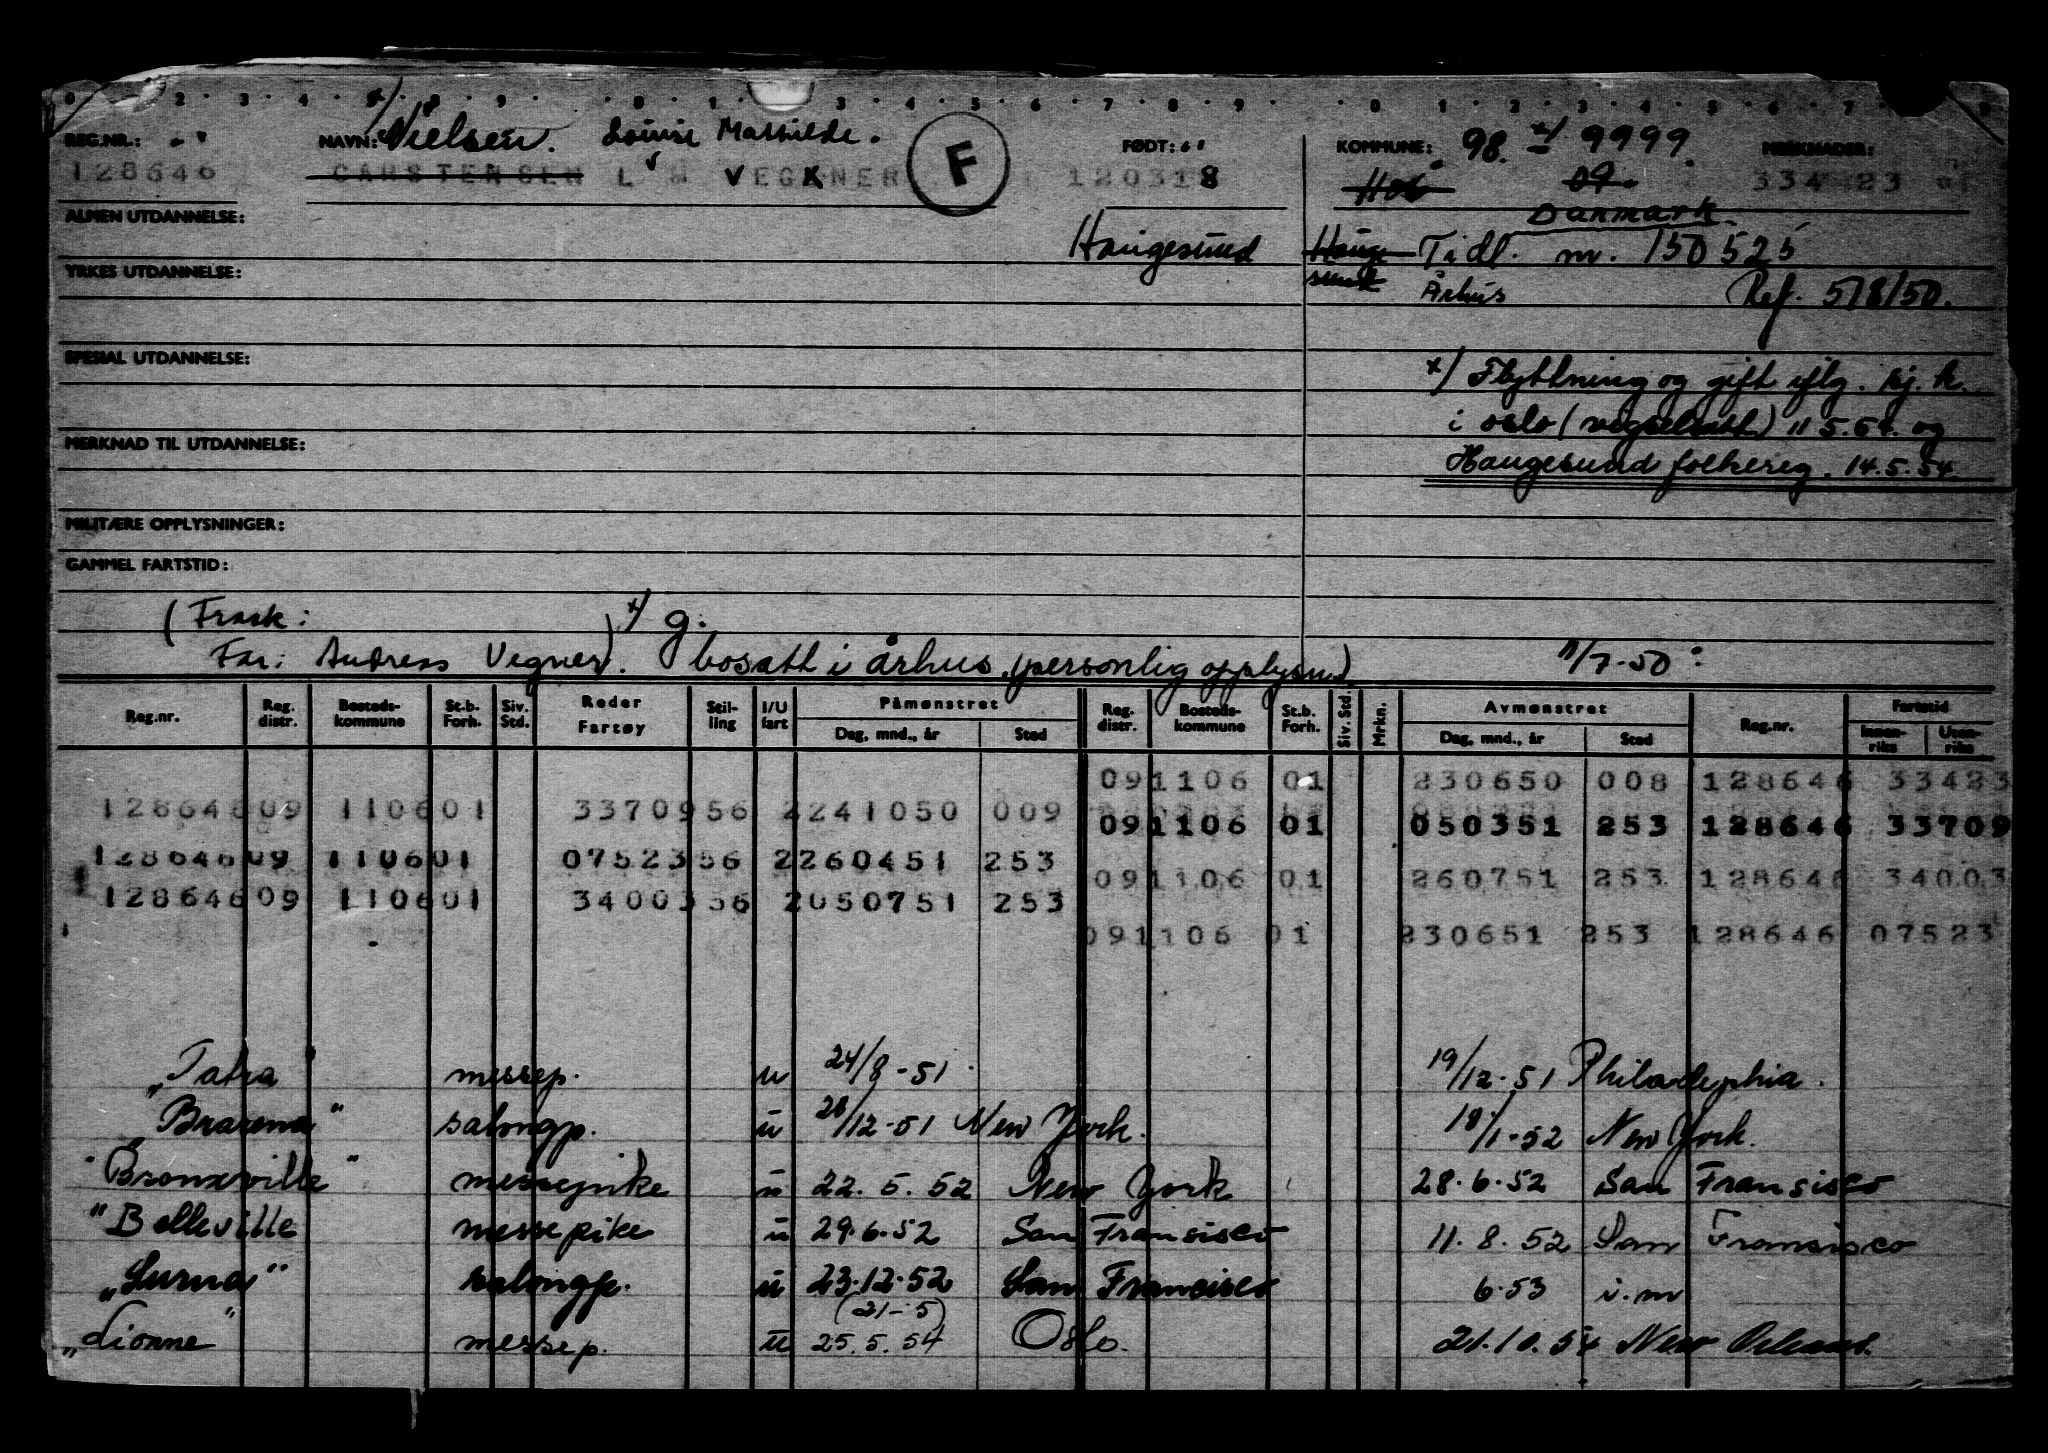 REG.NR.: NAVN: x/ Nielsen. Louise Mathilde. F FØDT: KOMMUNE: 98. x/ 9999. MERKNADER:
128646 CARSTENSEN L M VEGNER 120318 09. 334423
Danmark.
ALMEN UTDANNELSE: Haugesund Hauge Tidl. nr. 150525
YRKES UTDANNELSE: sund Århus Ref. 518/50.
SPESIAL UTDANNELSE: x/ Flyttning og gift iflg. kj. k.
i oslo (vigselsatt) 11 5.54. og
MERKNAD TIL UTDANNELSE: Haugesund folkereg. 14.5.54.
MILITÆRE OPPLYSNINGER:
GAMMEL FARTSTID:
(Frask: x/ g.
Far: Andreas Vegner). bosatt i århus. (personlig opplysn.) 11/7-50:
Reg.nr. Reg. distr. Bosteds-kommune St.b. Forh. Siv. Std. Reder Fartøy Stil-ling I/U fart Påmønstret Dag, mnd., år Sted Reg. distr. Bosteds-kommune St.b. Forh. Siv. Std. Mrkn. Avmønstret Dag, mnd., år Sted Reg.nr. Fartstid Innen-riks Uten-riks
091106 01 230650 008 128646 33423
128646 09 1106 01 33709 56 2 241050 009
091106 01 050351 253 128646 33709
128646 09 1106 01 07523 56 2 260451 253
091106 01 260751 253 128646 34003
128646 09 1106 01 34003 56 2 050751 253
091106 01 230651 253 128646 07523
„Tatra" messep. u 24/8-51. 19/12-51 Philadephia.
Brarena" salongp. u 28/12-51 New York. 18/1-52 New York.
"Bronxville" messepike u 22.5.52 New York 28.6.52 San Fransisco
"Belleville messepike u 29.6.52 San Fransisco 11.8.52 San Fransisco
„Surna" salongp. u 23.12.52 San Francisco 6.53 i.m
(21-5)
„Lionne" messep. u 25.5.54 Oslo. 21.10.54 New Orleans.